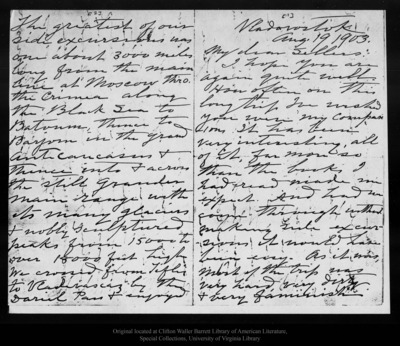 Vladivostok
Aug 19, 1903.
My dear Gilder:
I hope you are
again quite well.
How often on this
long trip I've wished
you were my compan
ion. It has been
very interesting, all
of it far more so
than the books
I had read made me
expect. And had we
gone through without
making side excur
sions it would have
been easy. As it was,
most of the trip was
very hard very dirty
& very
The greatest of our
side excursions was
one about 3000 miles
long from the main
line at Moscow thro.
the Crimea along
the Black Sea to
Batoum, thence to
in the grand
anticaucasus &
thence into & across
the still grander
main range with
its many glaciers
& nobly sculptured
peaks from 15000 to
over 18000 feet high.
We crossed from Tiflis
to Vladikavkaz by the
Dariel Pass & enjoyed
Original located at Clifton Waller Barrett Library of American Literature,
Special Collections, University of Virginia Library